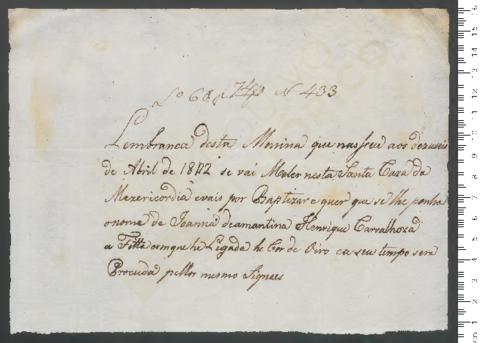 Lº 68 N 433
Lembranca desta Menina que nasseu aos dezaseis
de Abril de 1872 se vai Meter nesta Santa Caza da
Mezericordia e vais por Baptizar e quer que se lhe ponha
o nome de Joanna deamantina Henrique Carvalhoza
a Fitta emque he Legada he Cor de Oiro e a seu tempo sera
Procuda pellos mesmo Signaes